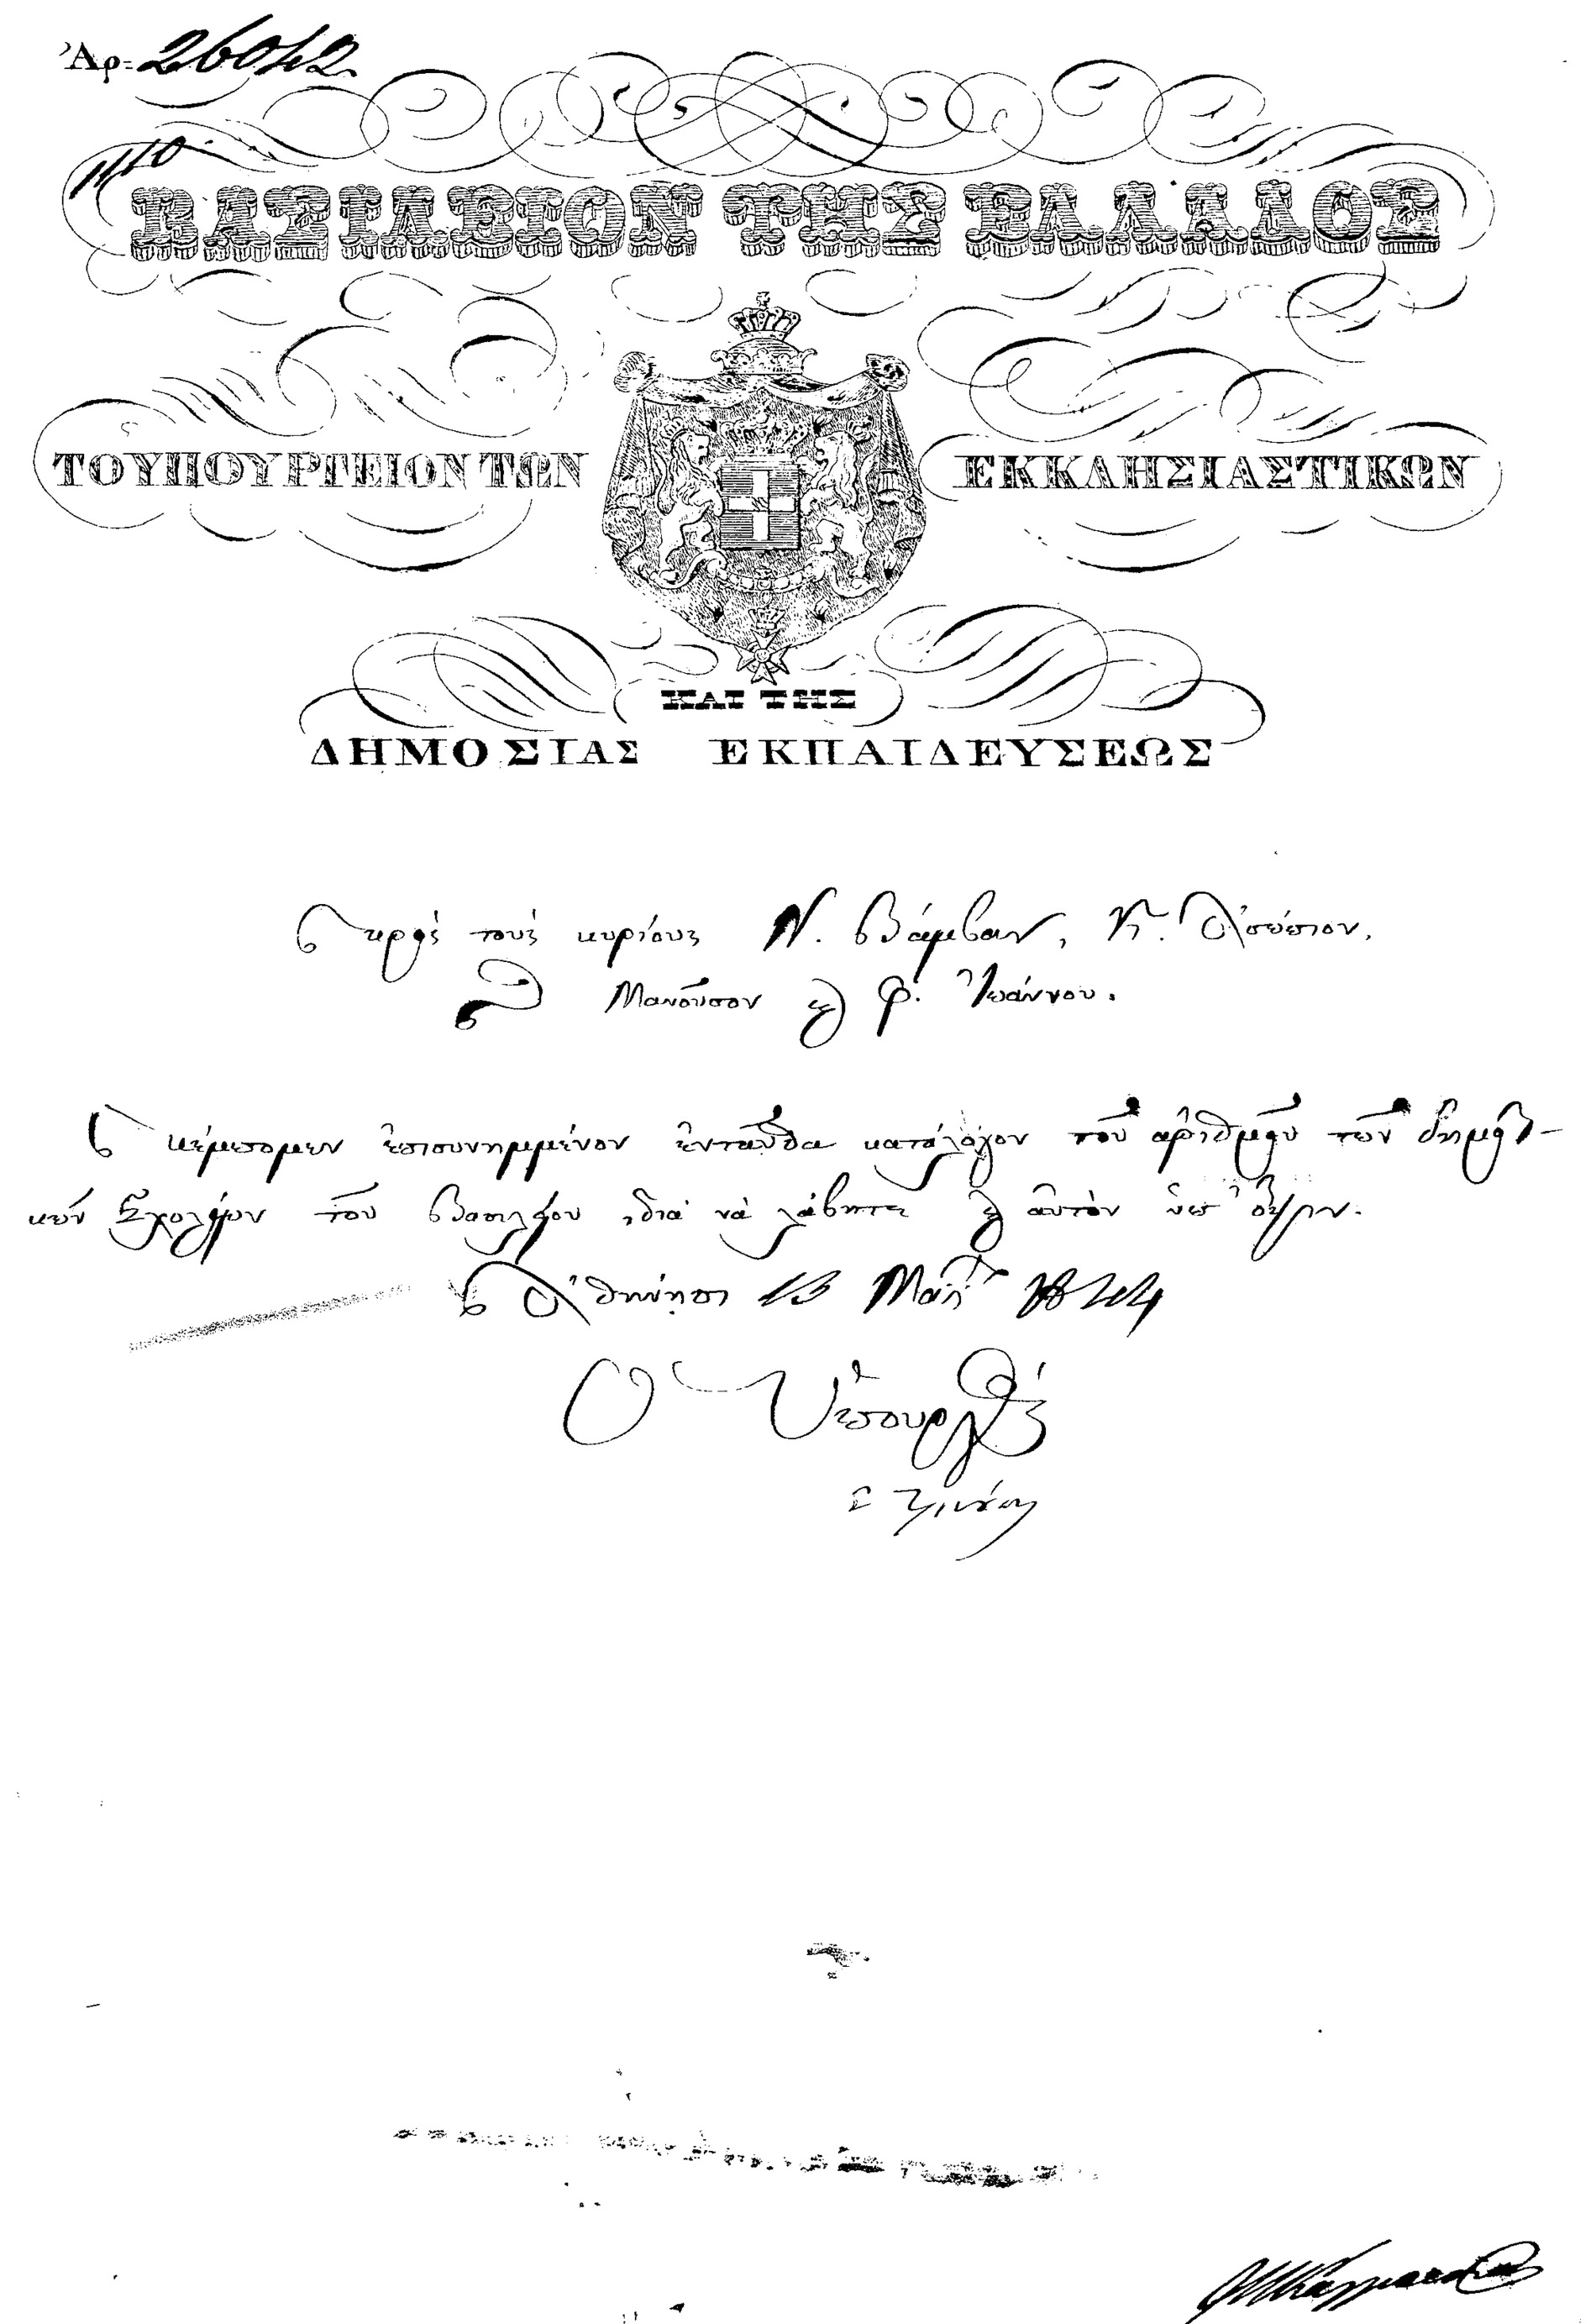 Ἀρ. 26042.
ΒΑΣΙΛΕΙΟΝ ΤΗΣ ΕΛΛΑΔΟΣ
ΤΟ ΥΠΟΥΡΓΕΙΟΝ ΤΩΝ ΕΚΚΛΗΣΙΑΣΤΙΚΩΝ
ΚΑΙ ΤΗΣ
ΔΗΜΟΣΙΑΣ ΕΚΠΑΙΔΕΥΣΕΩΣ
Πρὸς τοὺς κυρίους Ν. Βάμβαν, Κ. Ἀσώπιον,
Θ Μανοῦσον καὶ Φ. Ἰωάννου.
Πέμπομεν ἐπισυνημμένον ἐνταῦθα κατάλογον τοῦ ἀριθμοῦ τῶν δημοτι-
κῶν Σχολείων τοῦ Βασιλείου, διὰ νὰ λάβητε καὶ αὐτὸν ὑπ' ὄψιν.
Ἀθήνησι 13 1844
Ὁ Ὑπουργός